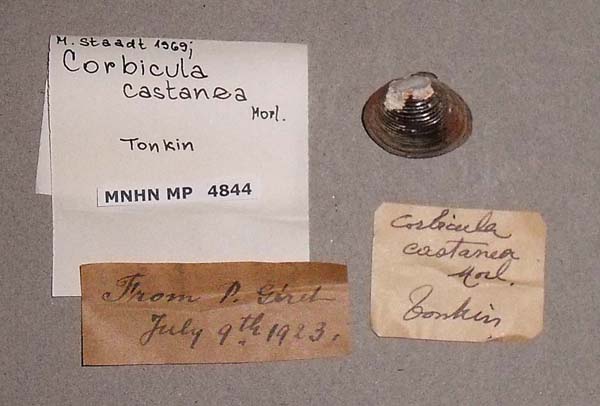 M. Staadt 1969;
Corbicula
castanea
Morl.
Tonkin
MNHN MP 4844
From P. Géret
July 9th 1923.
Corbicula
castanea
Morl.
Tonkin